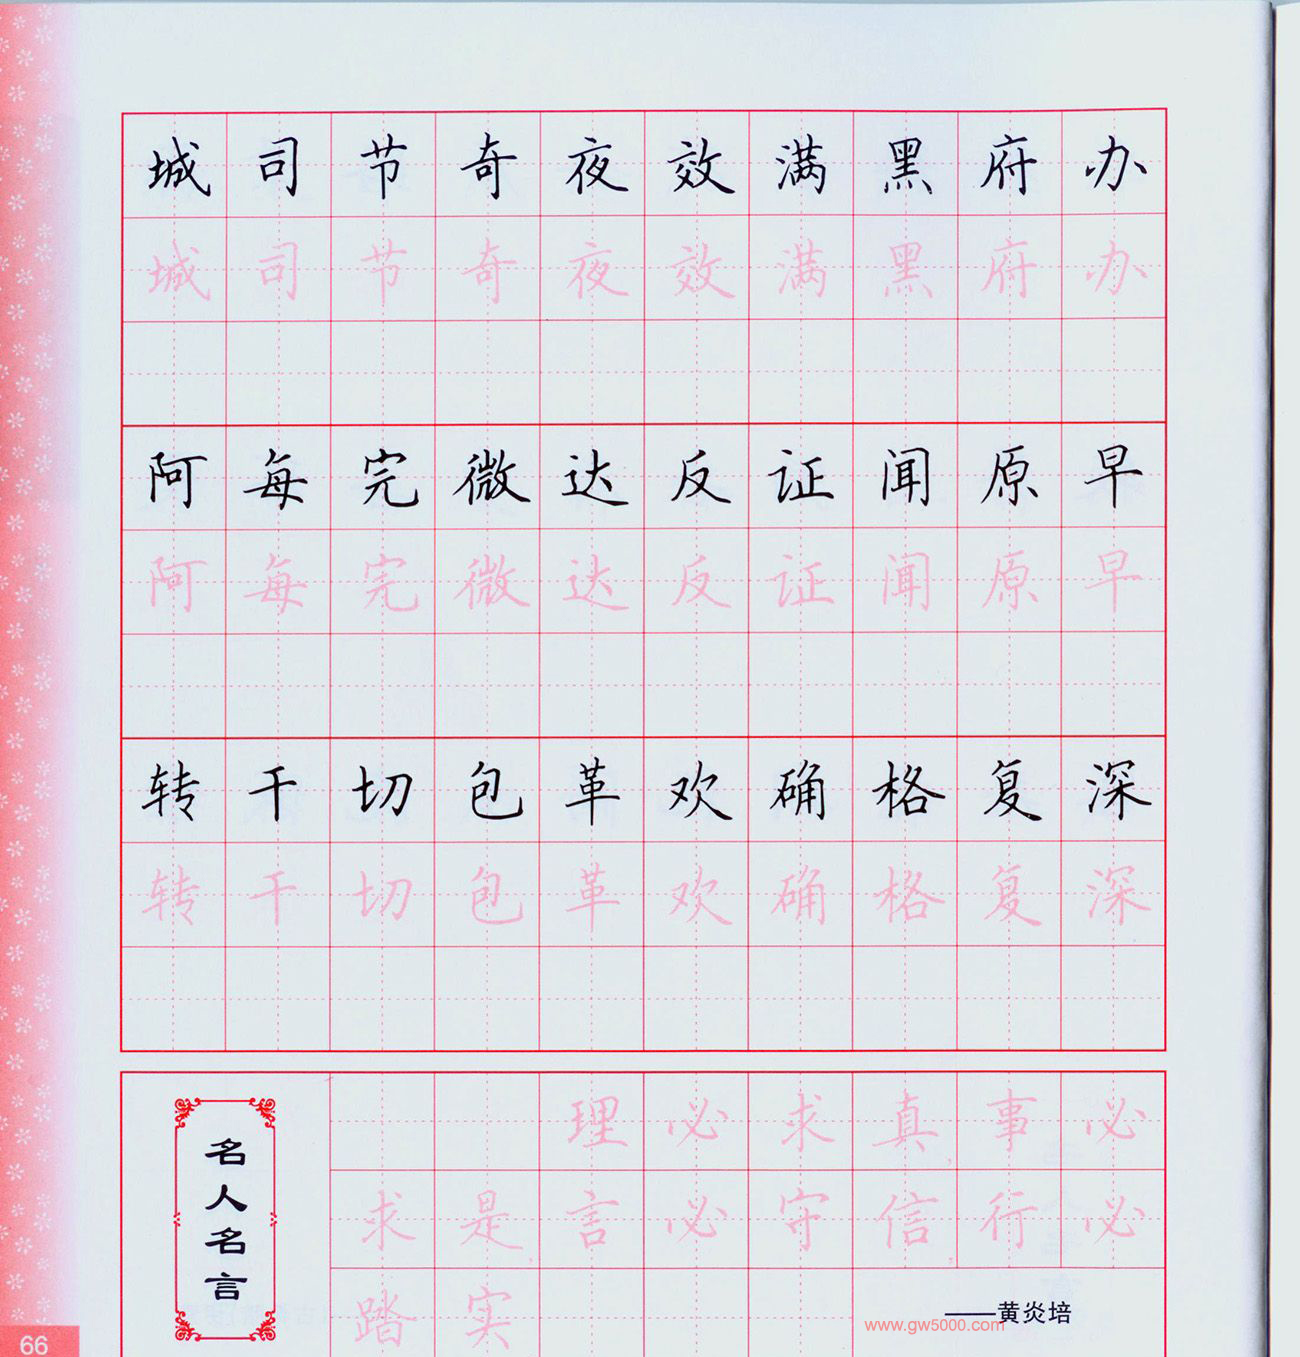 城司节奇夜效满黑府办
城司节奇夜效满黑府办
阿每完微达反证闻原早
阿每完微达反证闻原早
转干切包革欢确格复深
转干切包革欢确格复深
名人名言
理必求真,事必
求是,言必守信,行必
踏实
——黄炎培
www.gw5000.com
66